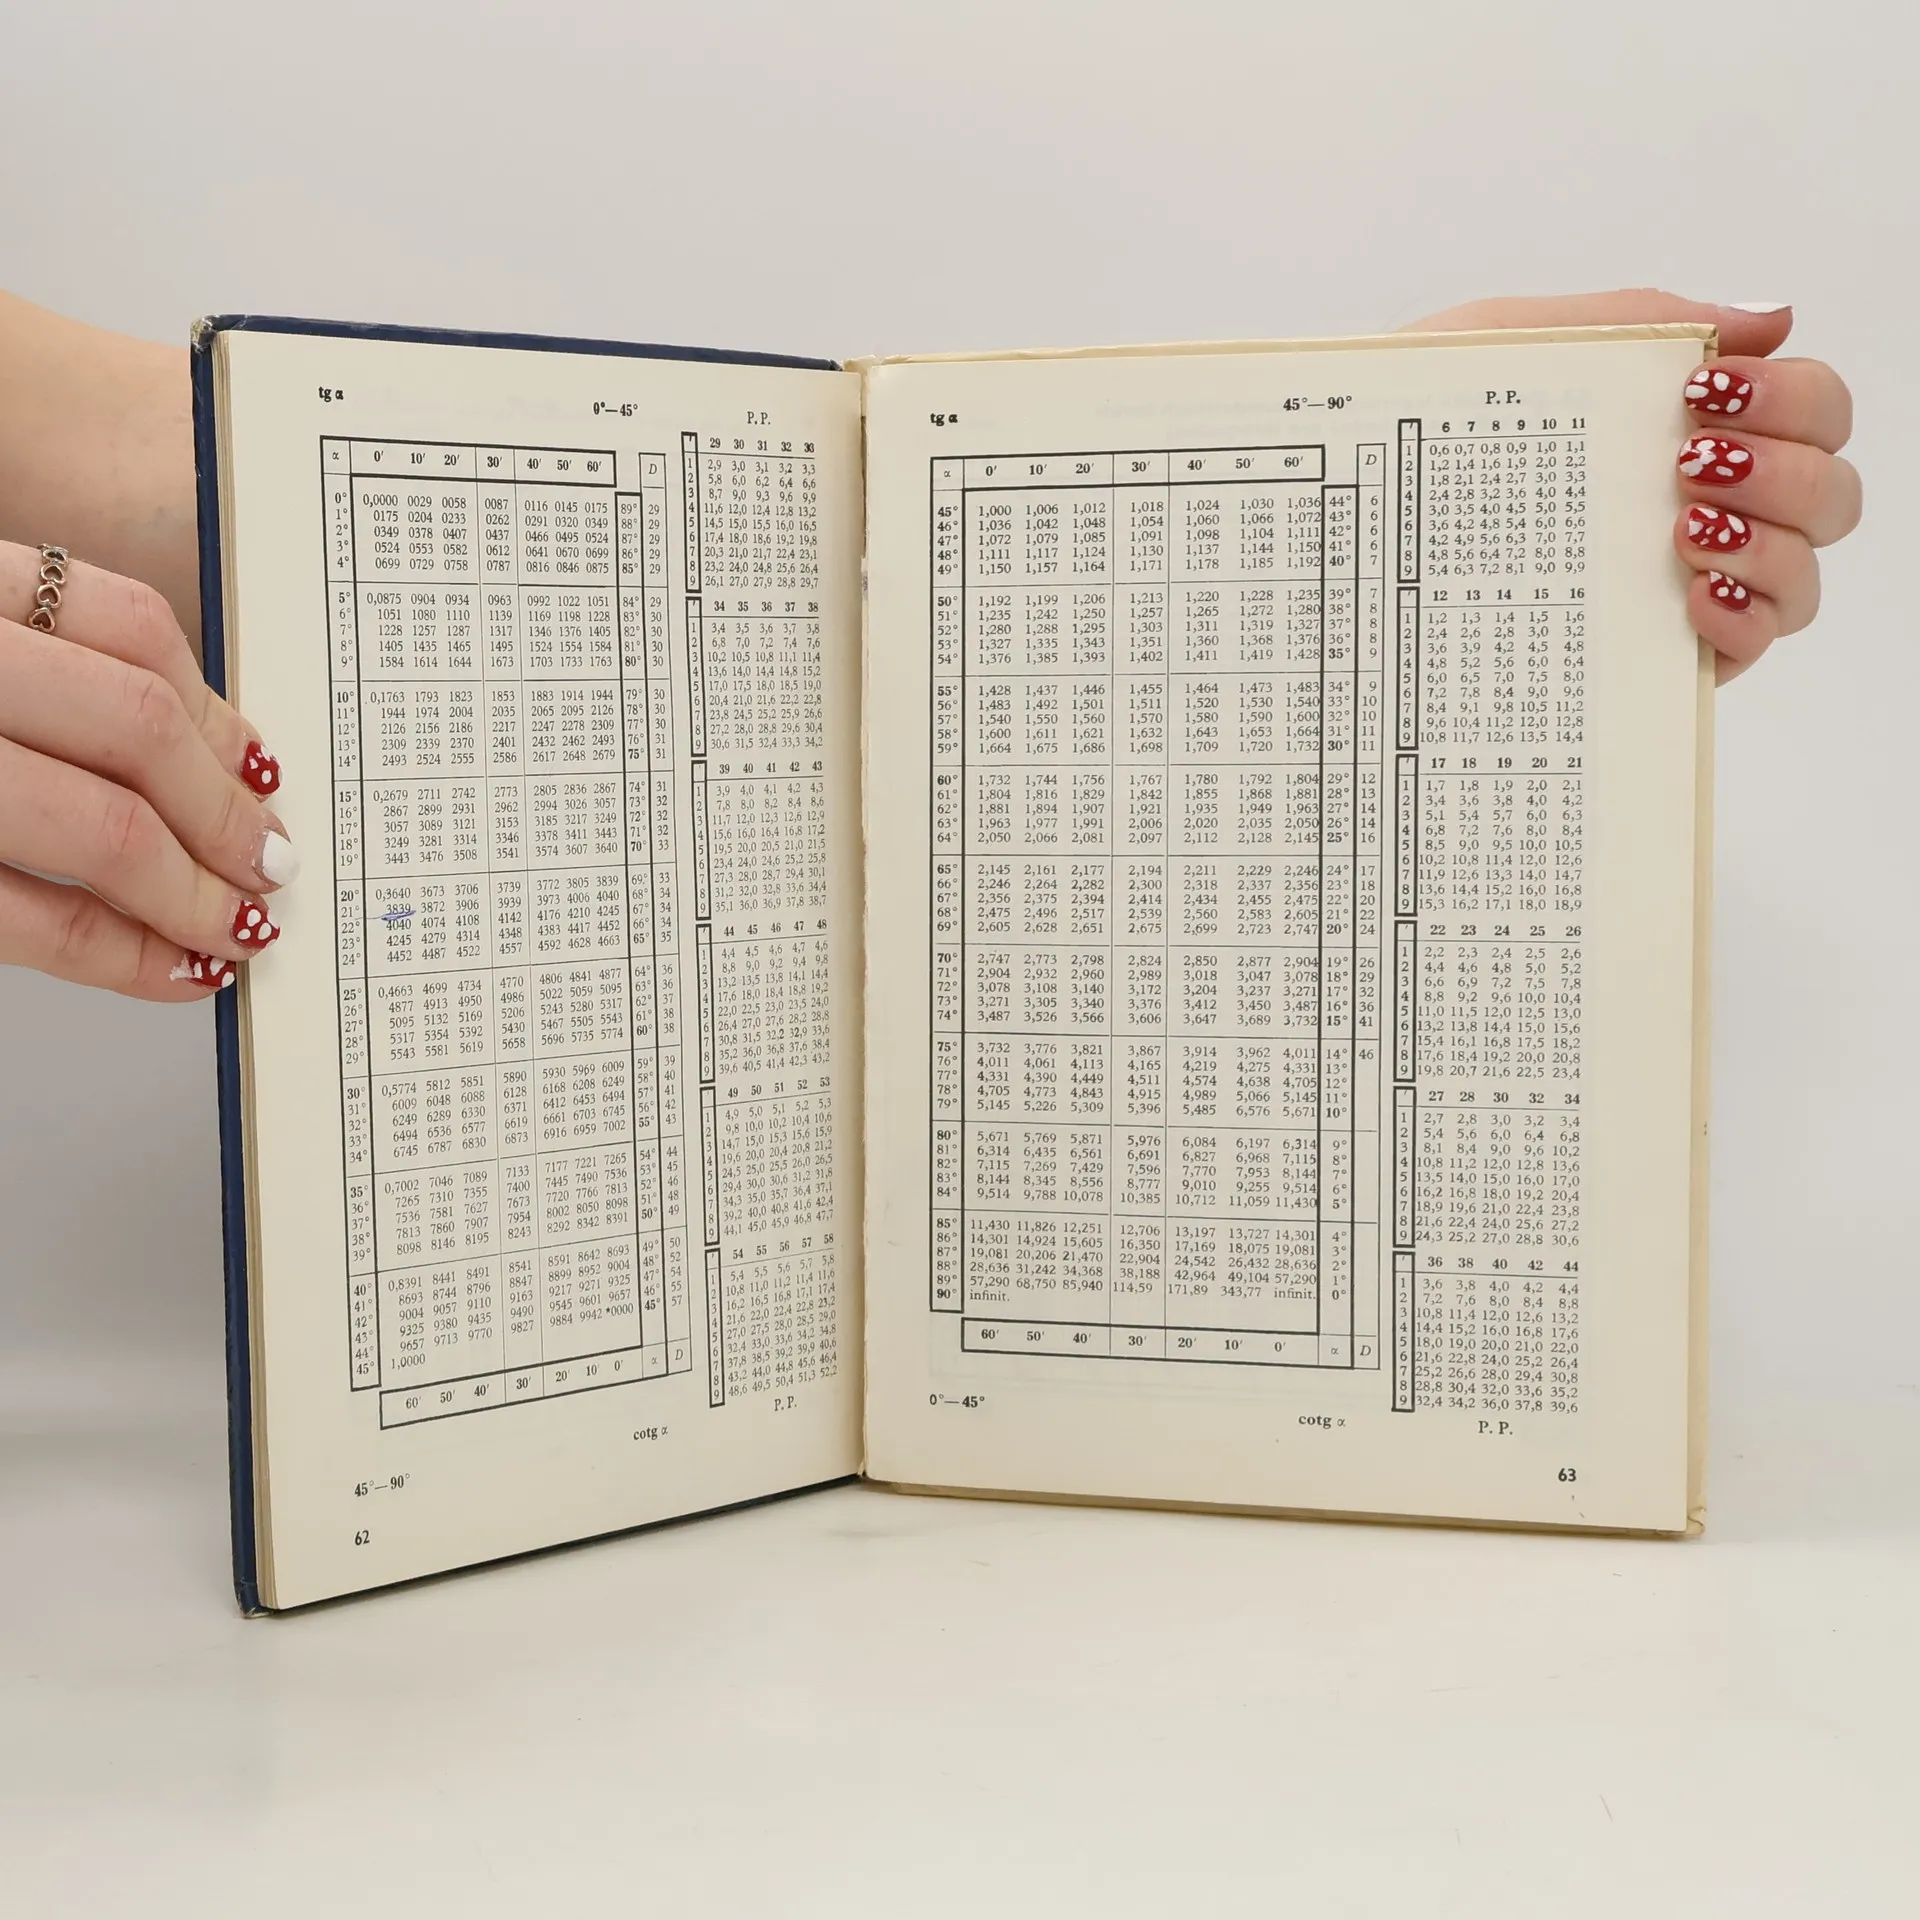 tg α 0°—45° P. P.
α 0′ 10′ 20′ 30′ 40′ 50′ 60′ D
0° 0,0000 0029 0058 0087 0116 0145 0175 89° 29
1° 0175 0204 0233 0262 0291 0320 0349 88° 29
2° 0349 0378 0407 0437 0466 0495 0524 87° 29
3° 0524 0553 0582 0612 0641 0670 0699 86° 29
4° 0699 0729 0758 0787 0816 0846 0875 85° 29
5° 0,0875 0904 0934 0963 0992 1022 1051 84° 29
6° 1051 1080 1110 1139 1169 1198 1228 83° 30
7° 1228 1257 1287 1317 1346 1376 1405 82° 30
8° 1405 1435 1465 1495 1524 1554 1584 81° 30
9° 1584 1614 1644 1673 1703 1733 1763 80° 30
10° 0,1763 1793 1823 1853 1883 1914 1944 79° 30
11° 1944 1974 2004 2035 2065 2095 2126 78° 30
12° 2126 2156 2186 2217 2247 2278 2309 77° 30
13° 2309 2339 2370 2401 2432 2462 2493 76° 31
14° 2493 2524 2555 2586 2617 2648 2679 75° 31
15° 0,2679 2711 2742 2773 2805 2836 2867 74° 31
16° 2867 2899 2931 2962 2994 3026 3057 73° 32
17° 3057 3089 3121 3153 3185 3217 3249 72° 32
18° 3249 3281 3314 3346 3378 3411 3443 71° 32
19° 3443 3476 3508 3541 3574 3607 3640 70° 33
20° 0,3640 3673 3706 3739 3772 3805 3839 69° 33
21° 3839 3872 3906 3939 3973 4006 4040 68° 34
22° 4040 4074 4108 4142 4176 4210 4245 67° 34
23° 4245 4279 4314 4348 4383 4417 4452 66° 34
24° 4452 4487 4522 4557 4592 4628 4663 65° 35
25° 0,4663 4699 4734 4770 4806 4841 4877 64° 36
26° 4877 4913 4950 4986 5022 5059 5095 63° 36
27° 5095 5132 5169 5206 5243 5280 5317 62° 37
28° 5317 5354 5392 5430 5467 5505 5543 61° 38
29° 5543 5581 5619 5658 5696 5735 5774 60° 38
30° 0,5774 5812 5851 5890 5930 5969 6009 59° 39
31° 6009 6048 6088 6128 6168 6208 6249 58° 40
32° 6249 6289 6330 6371 6412 6453 6494 57° 41
33° 6494 6536 6577 6619 6661 6703 6745 56° 42
34° 6745 6787 6830 6873 6916 6959 7002 55° 43
35° 0,7002 7046 7089 7133 7177 7221 7265 54° 44
36° 7265 7310 7355 7400 7445 7490 7536 53° 45
37° 7536 7581 7627 7673 7720 7766 7813 52° 46
38° 7813 7860 7907 7954 8002 8050 8098 51° 48
39° 8098 8146 8195 8243 8292 8342 8391 50° 49
40° 0,8391 8441 8491 8541 8591 8642 8693 49° 50
41° 8693 8744 8796 8847 8899 8952 9004 48° 52
42° 9004 9057 9110 9163 9217 9271 9325 47° 54
43° 9325 9380 9435 9490 9545 9601 9657 46° 55
44° 9657 9713 9770 9827 9884 9942 *0000 45° 57
45° 1,0000
60′ 50′ 40′ 30′ 20′ 10′ 0′ α D
′ 29 30 31 32 33
1 2,9 3,0 3,1 3,2 3,3
2 5,8 6,0 6,2 6,4 6,6
3 8,7 9,0 9,3 9,6 9,9
4 11,6 12,0 12,4 12,8 13,2
5 14,5 15,0 15,5 16,0 16,5
6 17,4 18,0 18,6 19,2 19,8
7 20,3 21,0 21,7 22,4 23,1
8 23,2 24,0 24,8 25,6 26,4
9 26,1 27,0 27,9 28,8 29,7
′ 34 35 36 37 38
1 3,4 3,5 3,6 3,7 3,8
2 6,8 7,0 7,2 7,4 7,6
3 10,2 10,5 10,8 11,1 11,4
4 13,6 14,0 14,4 14,8 15,2
5 17,0 17,5 18,0 18,5 19,0
6 20,4 21,0 21,6 22,2 22,8
7 23,8 24,5 25,2 25,9 26,6
8 27,2 28,0 28,8 29,6 30,4
9 30,6 31,5 32,4 33,3 34,2
′ 39 40 41 42 43
1 3,9 4,0 4,1 4,2 4,3
2 7,8 8,0 8,2 8,4 8,6
3 11,7 12,0 12,3 12,6 12,9
4 15,6 16,0 16,4 16,8 17,2
5 19,5 20,0 20,5 21,0 21,5
6 23,4 24,0 24,6 25,2 25,8
7 27,3 28,0 28,7 29,4 30,1
8 31,2 32,0 32,8 33,6 34,4
9 35,1 36,0 36,9 37,8 38,7
′ 44 45 46 47 48
1 4,4 4,5 4,6 4,7 4,6
2 8,8 9,0 9,2 9,4 9,8
3 13,2 13,5 13,8 14,1 14,4
4 17,6 18,0 18,4 18,8 19,2
5 22,0 22,5 23,0 23,5 24,0
6 26,4 27,0 27,6 28,2 28,8
7 30,8 31,5 32,2 32,9 33,6
8 35,2 36,0 36,8 37,6 38,4
9 39,6 40,5 41,4 42,3 43,2
′ 49 50 51 52 53
1 4,9 5,0 5,1 5,2 5,3
2 9,8 10,0 10,2 10,4 10,6
3 14,7 15,0 15,3 15,6 15,9
4 19,6 20,0 20,4 20,8 21,2
5 24,5 25,0 25,5 26,0 26,5
6 29,4 30,0 30,6 31,2 31,8
7 34,3 35,0 35,7 36,4 37,1
8 39,2 40,0 40,8 41,6 42,4
9 44,1 45,0 45,9 46,8 47,7
′ 54 55 56 57 58
1 5,4 5,5 5,6 5,7 5,8
2 10,8 11,0 11,2 11,4 11,6
3 16,2 16,5 16,8 17,1 17,4
4 21,6 22,0 22,4 22,8 23,2
5 27,0 27,5 28,0 28,5 29,0
6 32,4 33,0 33,6 34,2 34,8
7 37,8 38,5 39,2 39,9 40,6
8 43,2 44,0 44,8 45,6 46,4
9 48,6 49,5 50,4 51,3 52,2
P. P.
cotg α
45°—90°
62
tg α 45°—90° P. P.
α 0′ 10′ 20′ 30′ 40′ 50′ 60′ D
45° 1,000 1,006 1,012 1,018 1,024 1,030 1,036 44° 6
46° 1,036 1,042 1,048 1,054 1,060 1,066 1,072 43° 6
47° 1,072 1,079 1,085 1,091 1,098 1,104 1,111 42° 6
48° 1,111 1,117 1,124 1,130 1,137 1,144 1,150 41° 6
49° 1,150 1,157 1,164 1,171 1,178 1,185 1,192 40° 7
50° 1,192 1,199 1,206 1,213 1,220 1,228 1,235 39° 7
51° 1,235 1,242 1,250 1,257 1,265 1,272 1,280 38° 8
52° 1,280 1,288 1,295 1,303 1,311 1,319 1,327 37° 8
53° 1,327 1,335 1,343 1,351 1,360 1,368 1,376 36° 8
54° 1,376 1,385 1,393 1,402 1,411 1,419 1,428 35° 9
55° 1,428 1,437 1,446 1,455 1,464 1,473 1,483 34° 9
56° 1,483 1,492 1,501 1,511 1,520 1,530 1,540 33° 10
57° 1,540 1,550 1,560 1,570 1,580 1,590 1,600 32° 10
58° 1,600 1,611 1,621 1,632 1,643 1,653 1,664 31° 11
59° 1,664 1,675 1,686 1,698 1,709 1,720 1,732 30° 11
60° 1,732 1,744 1,756 1,767 1,780 1,792 1,804 29° 12
61° 1,804 1,816 1,829 1,842 1,855 1,868 1,881 28° 13
62° 1,881 1,894 1,907 1,921 1,935 1,949 1,963 27° 14
63° 1,963 1,977 1,991 2,006 2,020 2,035 2,050 26° 14
64° 2,050 2,066 2,081 2,097 2,112 2,128 2,145 25° 16
65° 2,145 2,161 2,177 2,194 2,211 2,229 2,246 24° 17
66° 2,246 2,264 2,282 2,300 2,318 2,337 2,356 23° 18
67° 2,356 2,375 2,394 2,414 2,434 2,455 2,475 22° 20
68° 2,475 2,496 2,517 2,539 2,560 2,583 2,605 21° 22
69° 2,605 2,628 2,651 2,675 2,699 2,723 2,747 20° 24
70° 2,747 2,773 2,798 2,824 2,850 2,877 2,904 19° 26
71° 2,904 2,932 2,960 2,989 3,018 3,047 3,078 18° 29
72° 3,078 3,108 3,140 3,172 3,204 3,237 3,271 17° 32
73° 3,271 3,305 3,340 3,376 3,412 3,450 3,487 16° 36
74° 3,487 3,526 3,566 3,606 3,647 3,689 3,732 15° 41
75° 3,732 3,776 3,821 3,867 3,914 3,962 4,011 14° 46
76° 4,011 4,061 4,113 4,165 4,219 4,275 4,331 13°
77° 4,331 4,390 4,449 4,511 4,574 4,638 4,705 12°
78° 4,705 4,773 4,843 4,915 4,989 5,066 5,145 11°
79° 5,145 5,226 5,309 5,396 5,485 6,576 5,671 10°
80° 5,671 5,769 5,871 5,976 6,084 6,197 6,314 9°
81° 6,314 6,435 6,561 6,691 6,827 6,968 7,115 8°
82° 7,115 7,269 7,429 7,596 7,770 7,953 8,144 7°
83° 8,144 8,345 8,556 8,777 9,010 9,255 9,514 6°
84° 9,514 9,788 10,078 10,385 10,712 11,059 11,430 5°
85° 11,430 11,826 12,251 12,706 13,197 13,727 14,301 4°
86° 14,301 14,924 15,605 16,350 17,169 18,075 19,081 3°
87° 19,081 20,206 21,470 22,904 24,542 26,432 28,636 2°
88° 28,636 31,242 34,368 38,188 42,964 49,104 57,290 1°
89° 57,290 68,750 85,940 114,59 171,89 343,77 infinit. 0°
90° infinit.
60′ 50′ 40′ 30′ 20′ 10′ 0′ α D
′ 6 7 8 9 10 11
1 0,6 0,7 0,8 0,9 1,0 1,1
2 1,2 1,4 1,6 1,9 2,0 2,2
3 1,8 2,1 2,4 2,7 3,0 3,3
4 2,4 2,8 3,2 3,6 4,0 4,4
5 3,0 3,5 4,0 4,5 5,0 5,5
6 3,6 4,2 4,8 5,4 6,0 6,6
7 4,2 4,9 5,6 6,3 7,0 7,7
8 4,8 5,6 6,4 7,2 8,0 8,8
9 5,4 6,3 7,2 8,1 9,0 9,9
′ 12 13 14 15 16
1 1,2 1,3 1,4 1,5 1,6
2 2,4 2,6 2,8 3,0 3,2
3 3,6 3,9 4,2 4,5 4,8
4 4,8 5,2 5,6 6,0 6,4
5 6,0 6,5 7,0 7,5 8,0
6 7,2 7,8 8,4 9,0 9,6
7 8,4 9,1 9,8 10,5 11,2
8 9,6 10,4 11,2 12,0 12,8
9 10,8 11,7 12,6 13,5 14,4
′ 17 18 19 20 21
1 1,7 1,8 1,9 2,0 2,1
2 3,4 3,6 3,8 4,0 4,2
3 5,1 5,4 5,7 6,0 6,3
4 6,8 7,2 7,6 8,0 8,4
5 8,5 9,0 9,5 10,0 10,5
6 10,2 10,8 11,4 12,0 12,6
7 11,9 12,6 13,3 14,0 14,7
8 13,6 14,4 15,2 16,0 16,8
9 15,3 16,2 17,1 18,0 18,9
′ 22 23 24 25 26
1 2,2 2,3 2,4 2,5 2,6
2 4,4 4,6 4,8 5,0 5,2
3 6,6 6,9 7,2 7,5 7,8
4 8,8 9,2 9,6 10,0 10,4
5 11,0 11,5 12,0 12,5 13,0
6 13,2 13,8 14,4 15,0 15,6
7 15,4 16,1 16,8 17,5 18,2
8 17,6 18,4 19,2 20,0 20,8
9 19,8 20,7 21,6 22,5 23,4
′ 27 28 30 32 34
1 2,7 2,8 3,0 3,2 3,4
2 5,4 5,6 6,0 6,4 6,8
3 8,1 8,4 9,0 9,6 10,2
4 10,8 11,2 12,0 12,8 13,6
5 13,5 14,0 15,0 16,0 17,0
6 16,2 16,8 18,0 19,2 20,4
7 18,9 19,6 21,0 22,4 23,8
8 21,6 22,4 24,0 25,6 27,2
9 24,3 25,2 27,0 28,8 30,6
′ 36 38 40 42 44
1 3,6 3,8 4,0 4,2 4,4
2 7,2 7,6 8,0 8,4 8,8
3 10,8 11,4 12,0 12,6 13,2
4 14,4 15,2 16,0 16,8 17,6
5 18,0 19,0 20,0 21,0 22,0
6 21,6 22,8 24,0 25,2 26,4
7 25,2 26,6 28,0 29,4 30,8
8 28,8 30,4 32,0 33,6 35,2
9 32,4 34,2 36,0 37,8 39,6
0°—45° cotg α P. P.
63